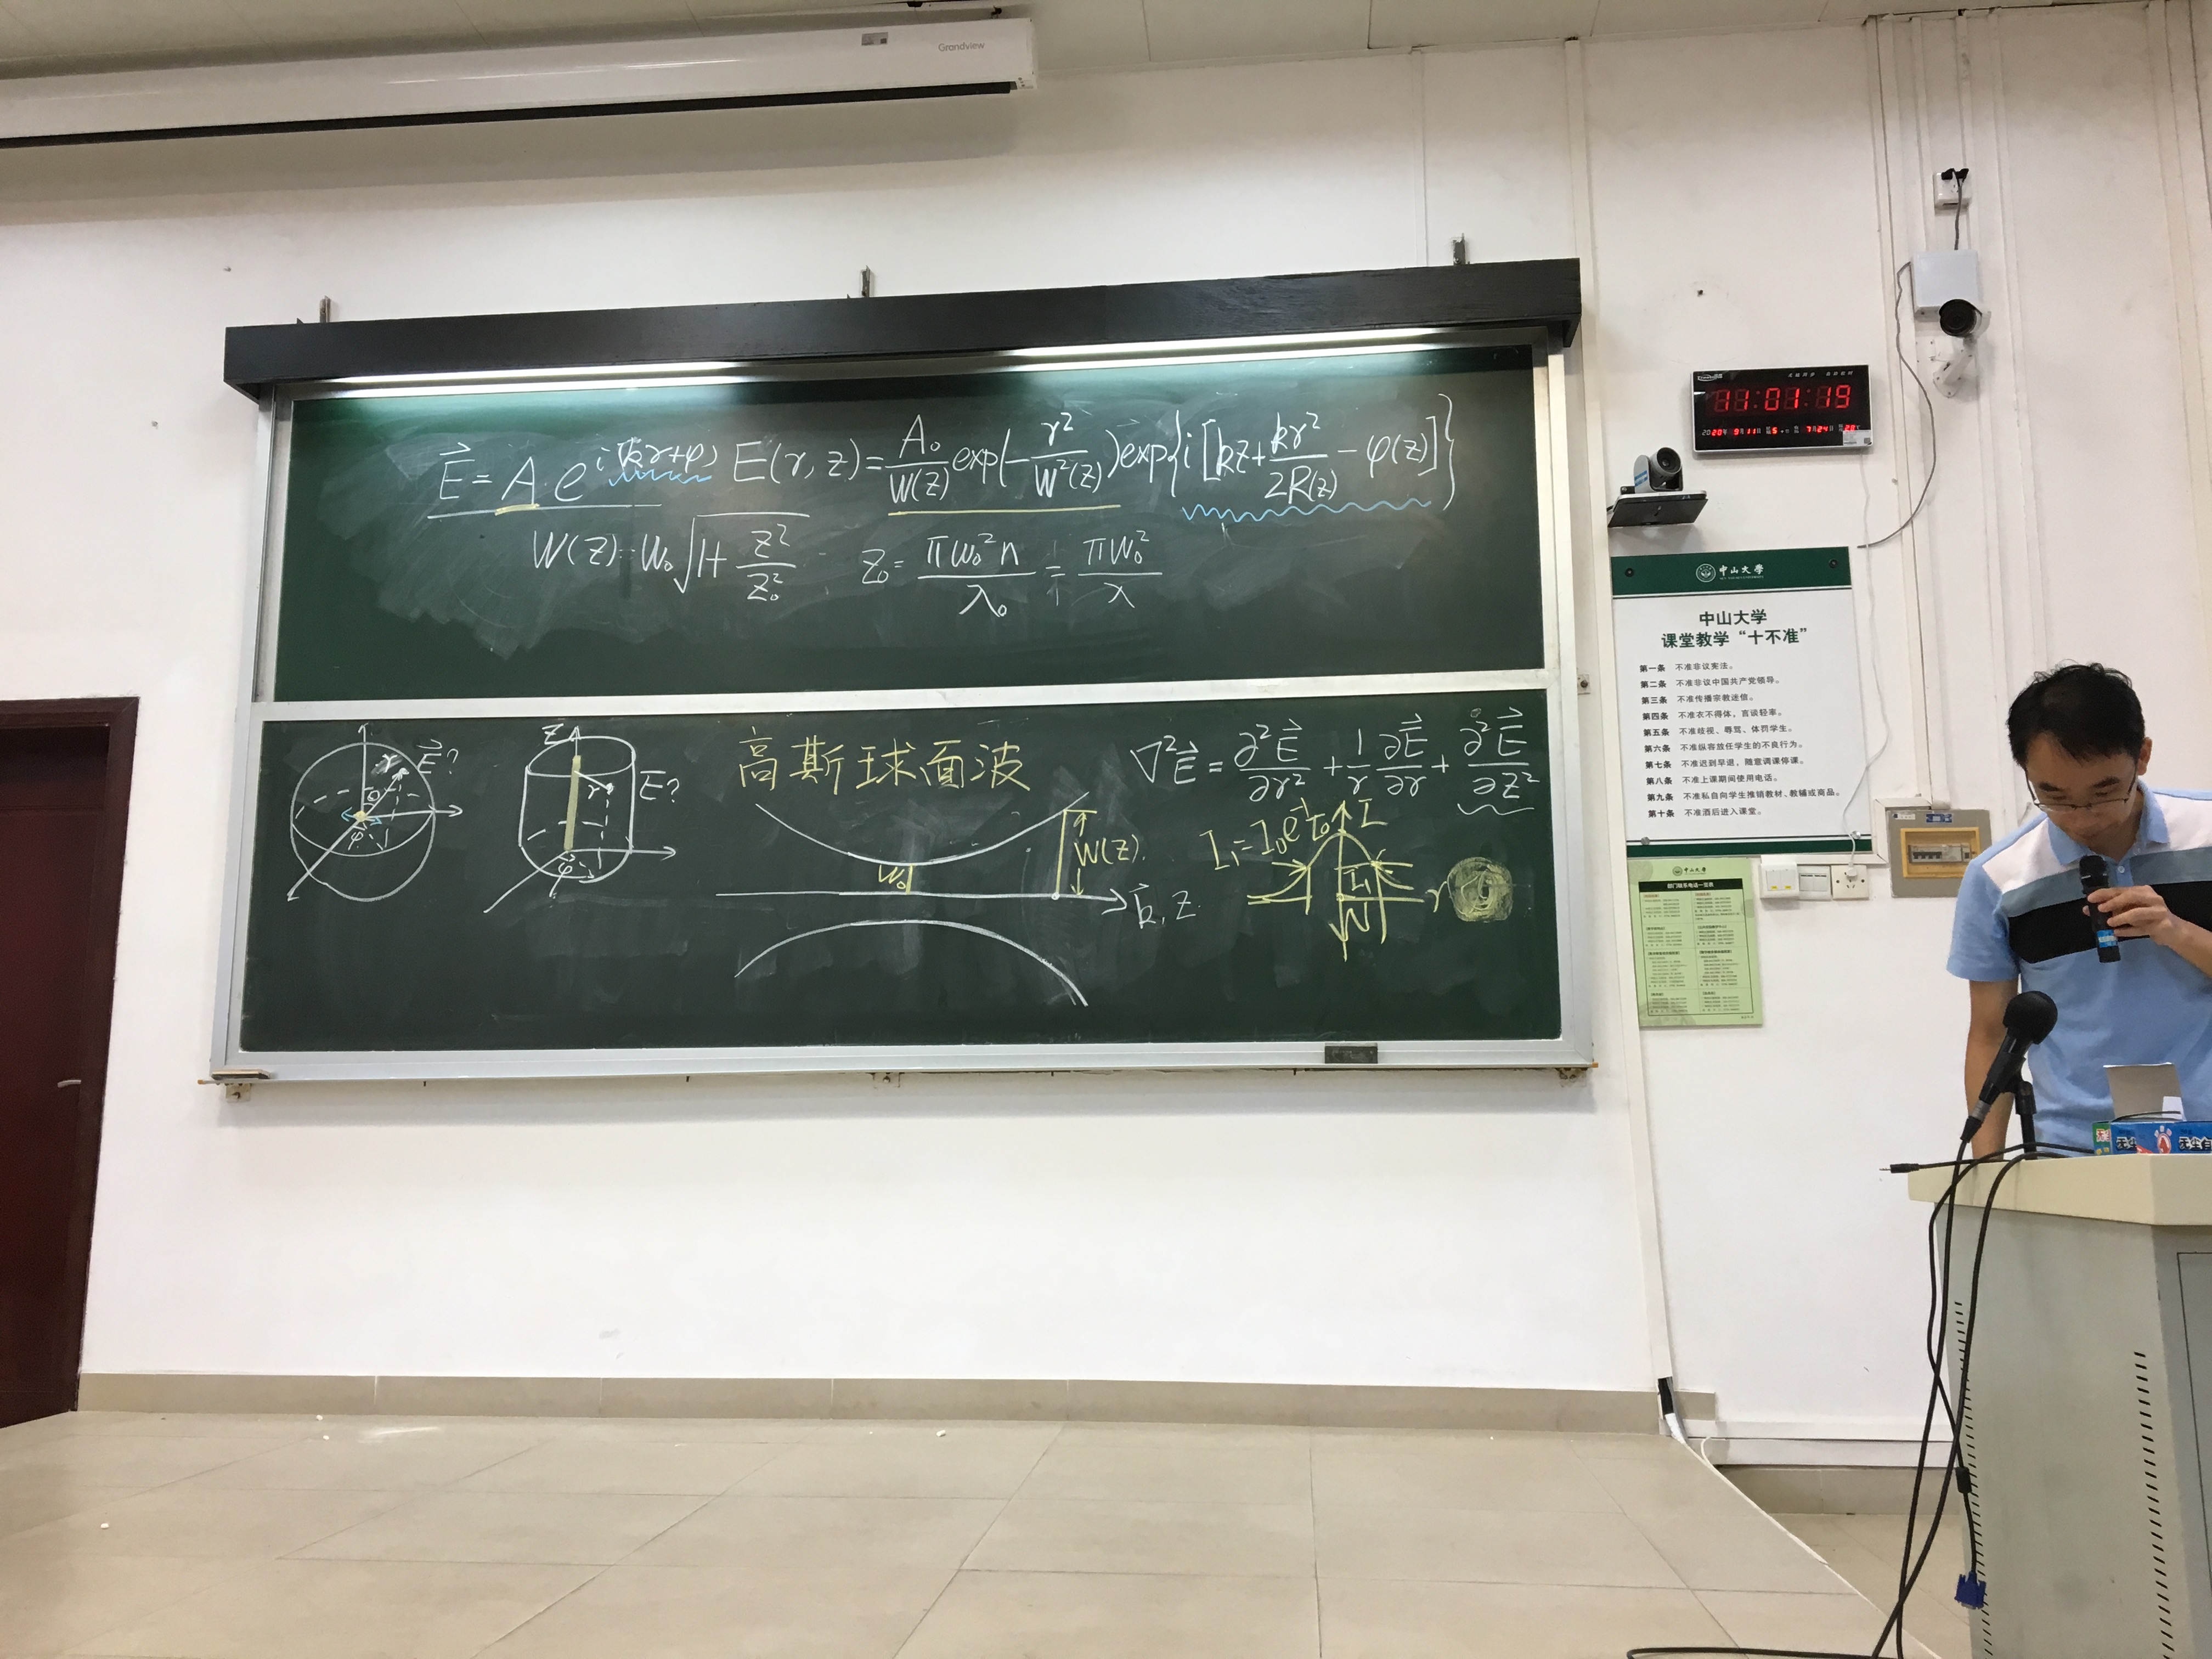 Grandview
E⃗ = A e^{i(kr+φ)} E(r, z) = A₀/W(z) exp(-r²/W²(z)) exp{i[kz + kr²/2R(z) - φ(z)]}
W(z) = W₀√(1 + z²/z₀²) z₀ = πw₀²n/λ₀ = πw₀²/λ
r E⃗?
θ
φ
z
r E?
φ
高斯球面波
W₀
W(z)
k⃗, z
∇²E⃗ = ∂²E⃗/∂r² + 1/r ∂E⃗/∂r + ∂²E⃗/∂z²
I
I₁
r
11:01:19
2020 9月11日
7月24日
中山大学
中山大学
课堂教学“十不准”
第一条 不准非议宪法。
第二条 不准非议中国共产党领导。
第三条 不准传播宗教迷信。
第四条 不准衣不得体，言谈轻率。
第五条 不准歧视、辱骂、体罚学生。
第六条 不准纵容放任学生的不良行为。
第七条 不准迟到早退，随意调课停课。
第八条 不准上课期间使用电话。
第九条 不准私自向学生推销教材、教辅或商品。
第十条 不准酒后进入课堂。
中山大学
部门联系电话一览表
无尘
无尘